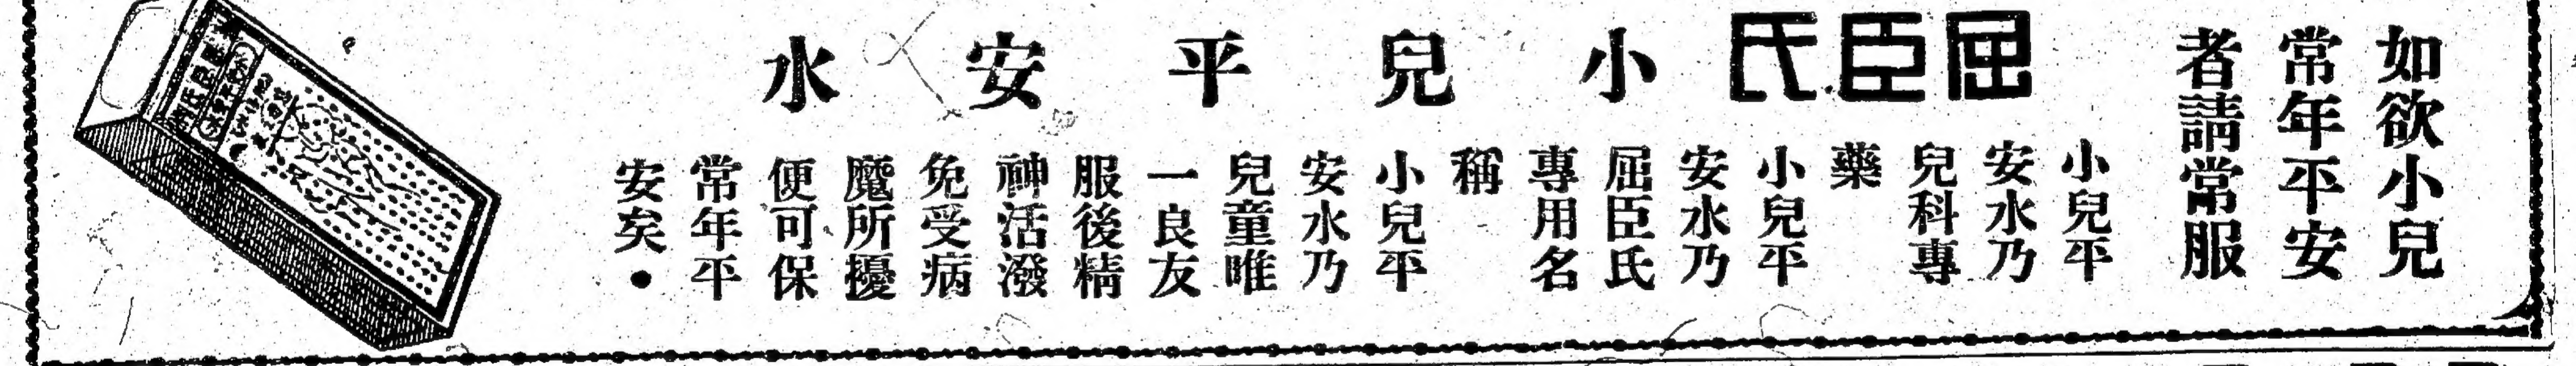 如欲小兒
常年平安
者請常服
屈臣氏
小兒平安水
小兒平
安水乃
兒科專
藥
小兒平
安水乃
屈臣氏
專用名
稱
小兒平
安水乃
兒童唯
一良友
服後精
神活潑
免受病
魔所擾
便可保
常年平
安矣●